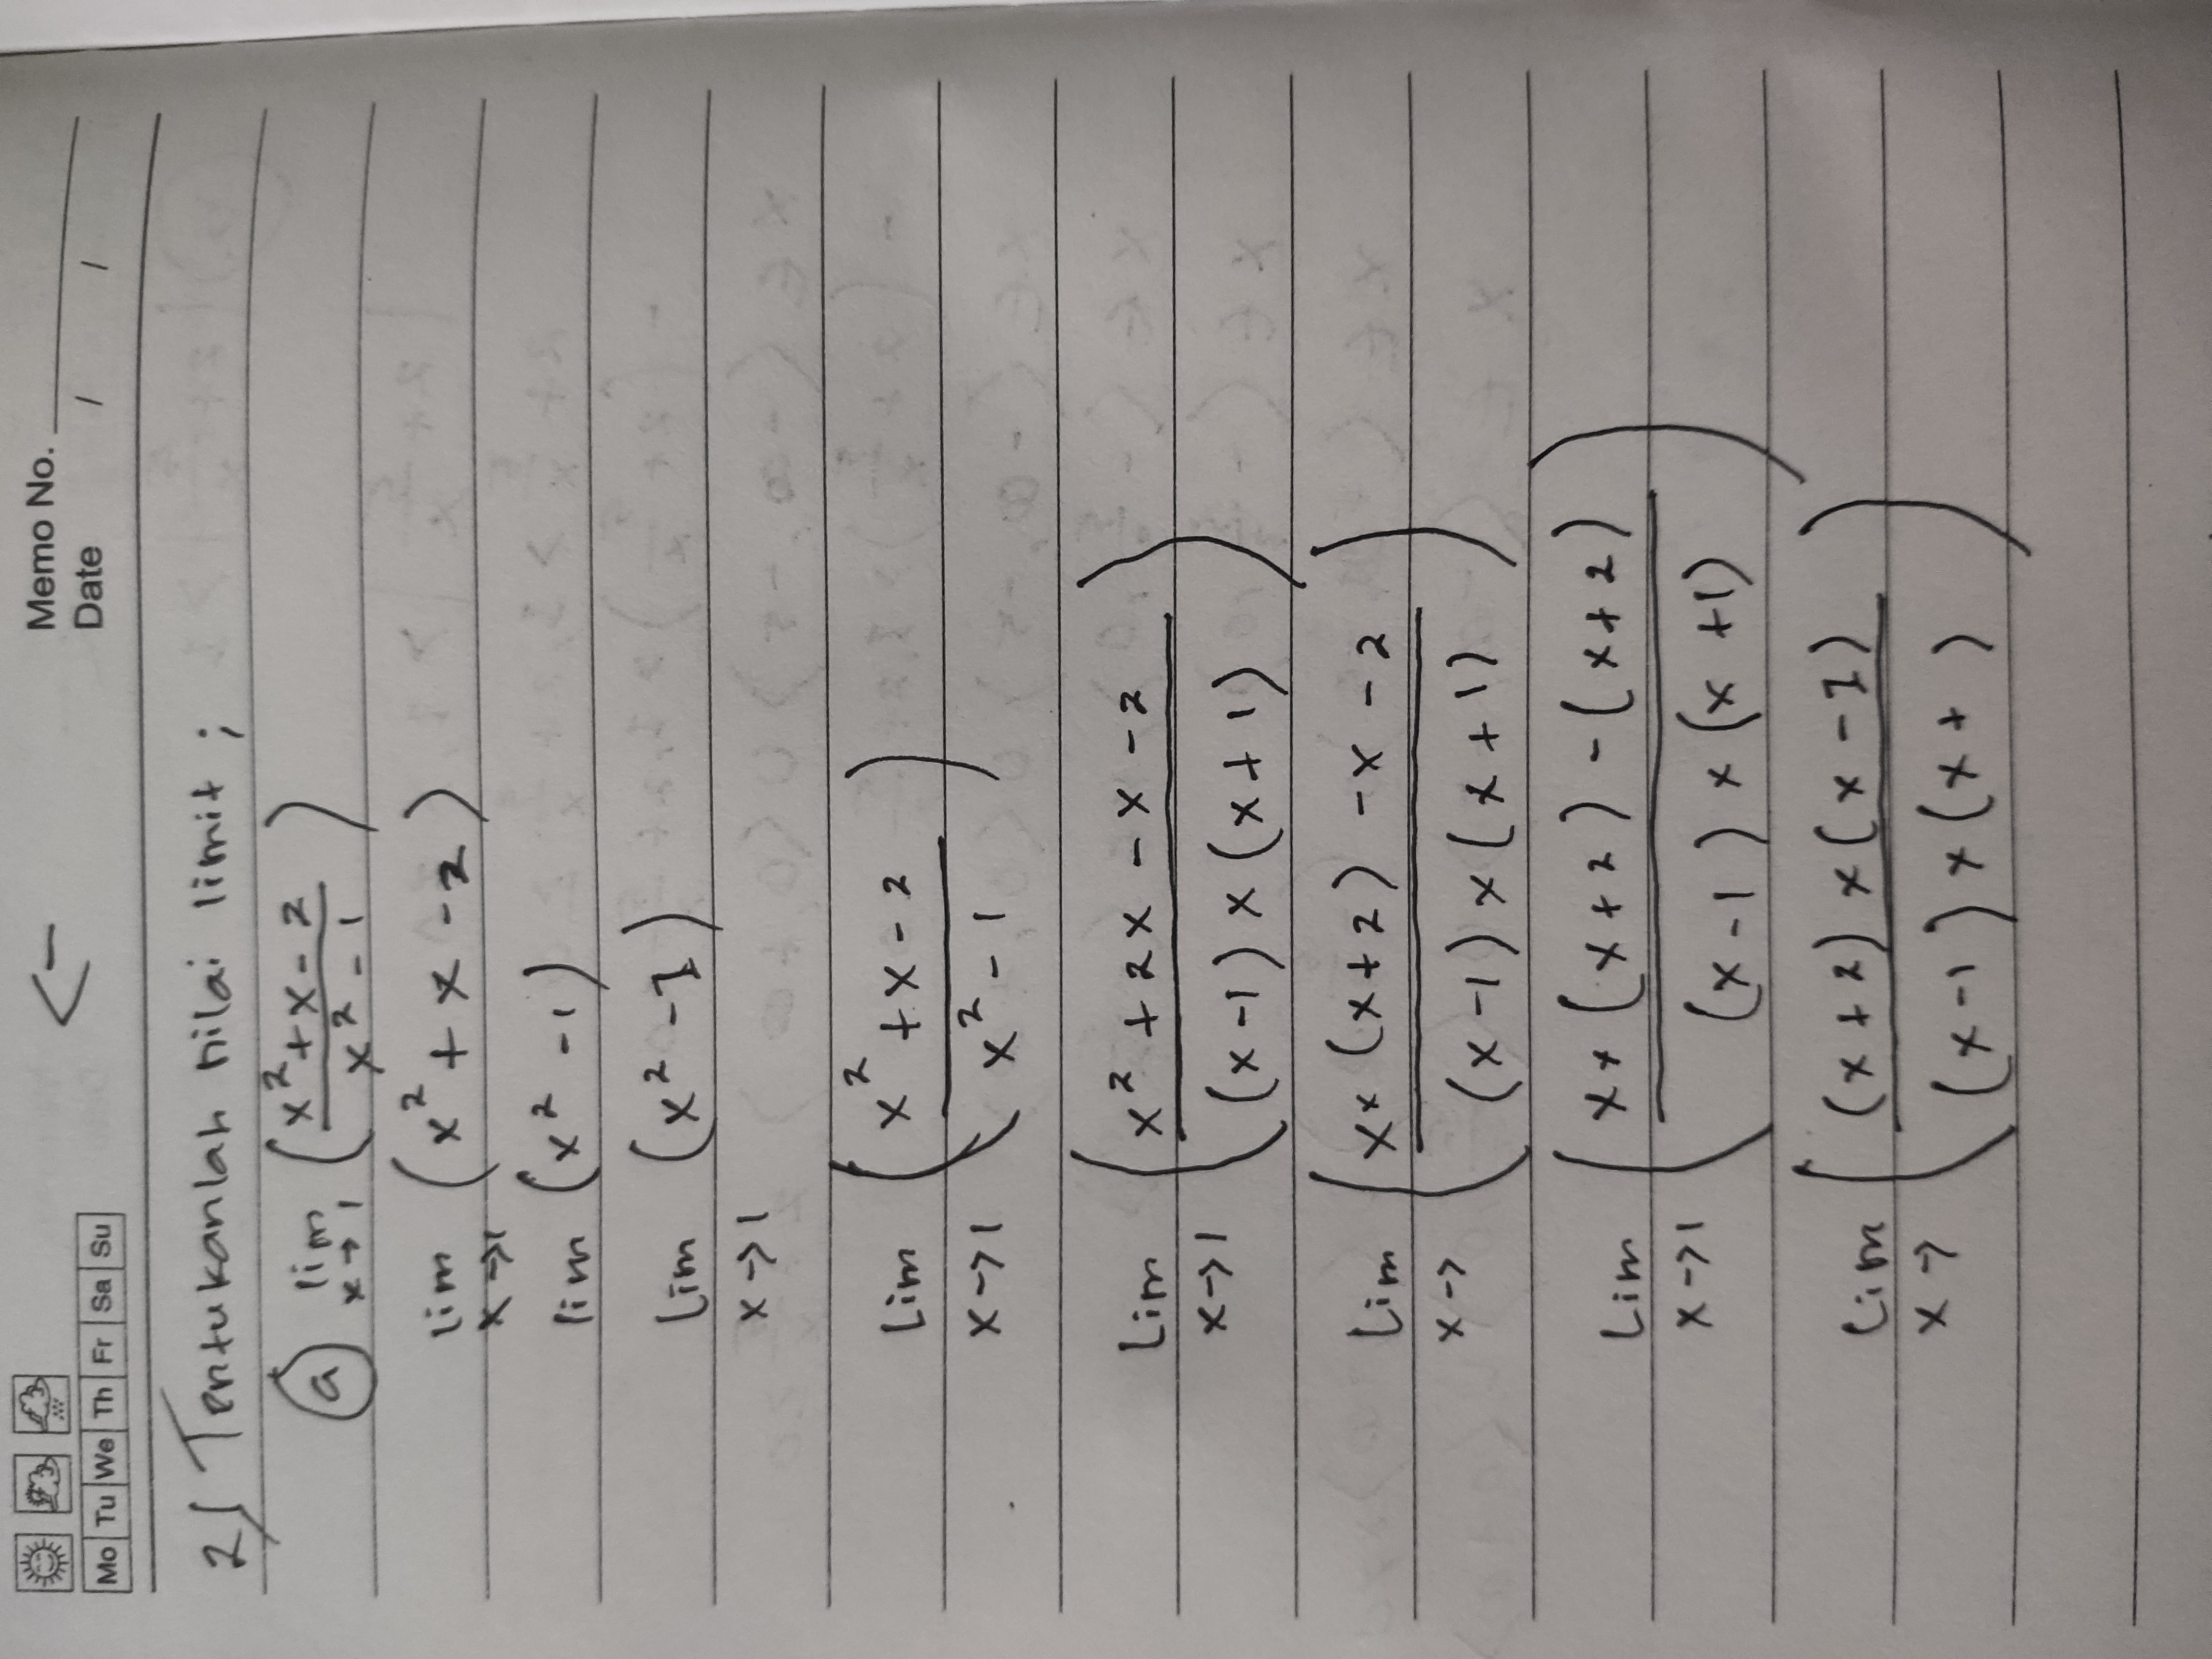 <-
Memo No.
Mo Tu We Th Fr Sa Su
Date / /
2) Tentukanlah nilai limit ;
(a) lim x→1 (x² + x - 2 / x² - 1)
lim x→1 (x² + x - 2)
lim (x² - 1)
lim x→1 (x² - 1)
Lim x→1 (x² + x - 2 / x² - 1)
Lim x→1 (x² + 2x - x - 2 / (x-1) × (x+1))
Lim x→ (x × (x+2) - x - 2 / (x-1) × (x+1))
Lim x→1 (x × (x+2) - (x+2) / (x-1) × (x+1))
Lim x→ ((x+2) × (x-1) / (x-1) × (x+ ))